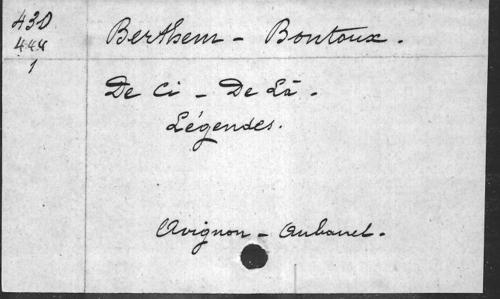 430
444
1
Berthem - Bontoux.
De Ci - De Là.
Légendes.
Avignon - Aubanel.